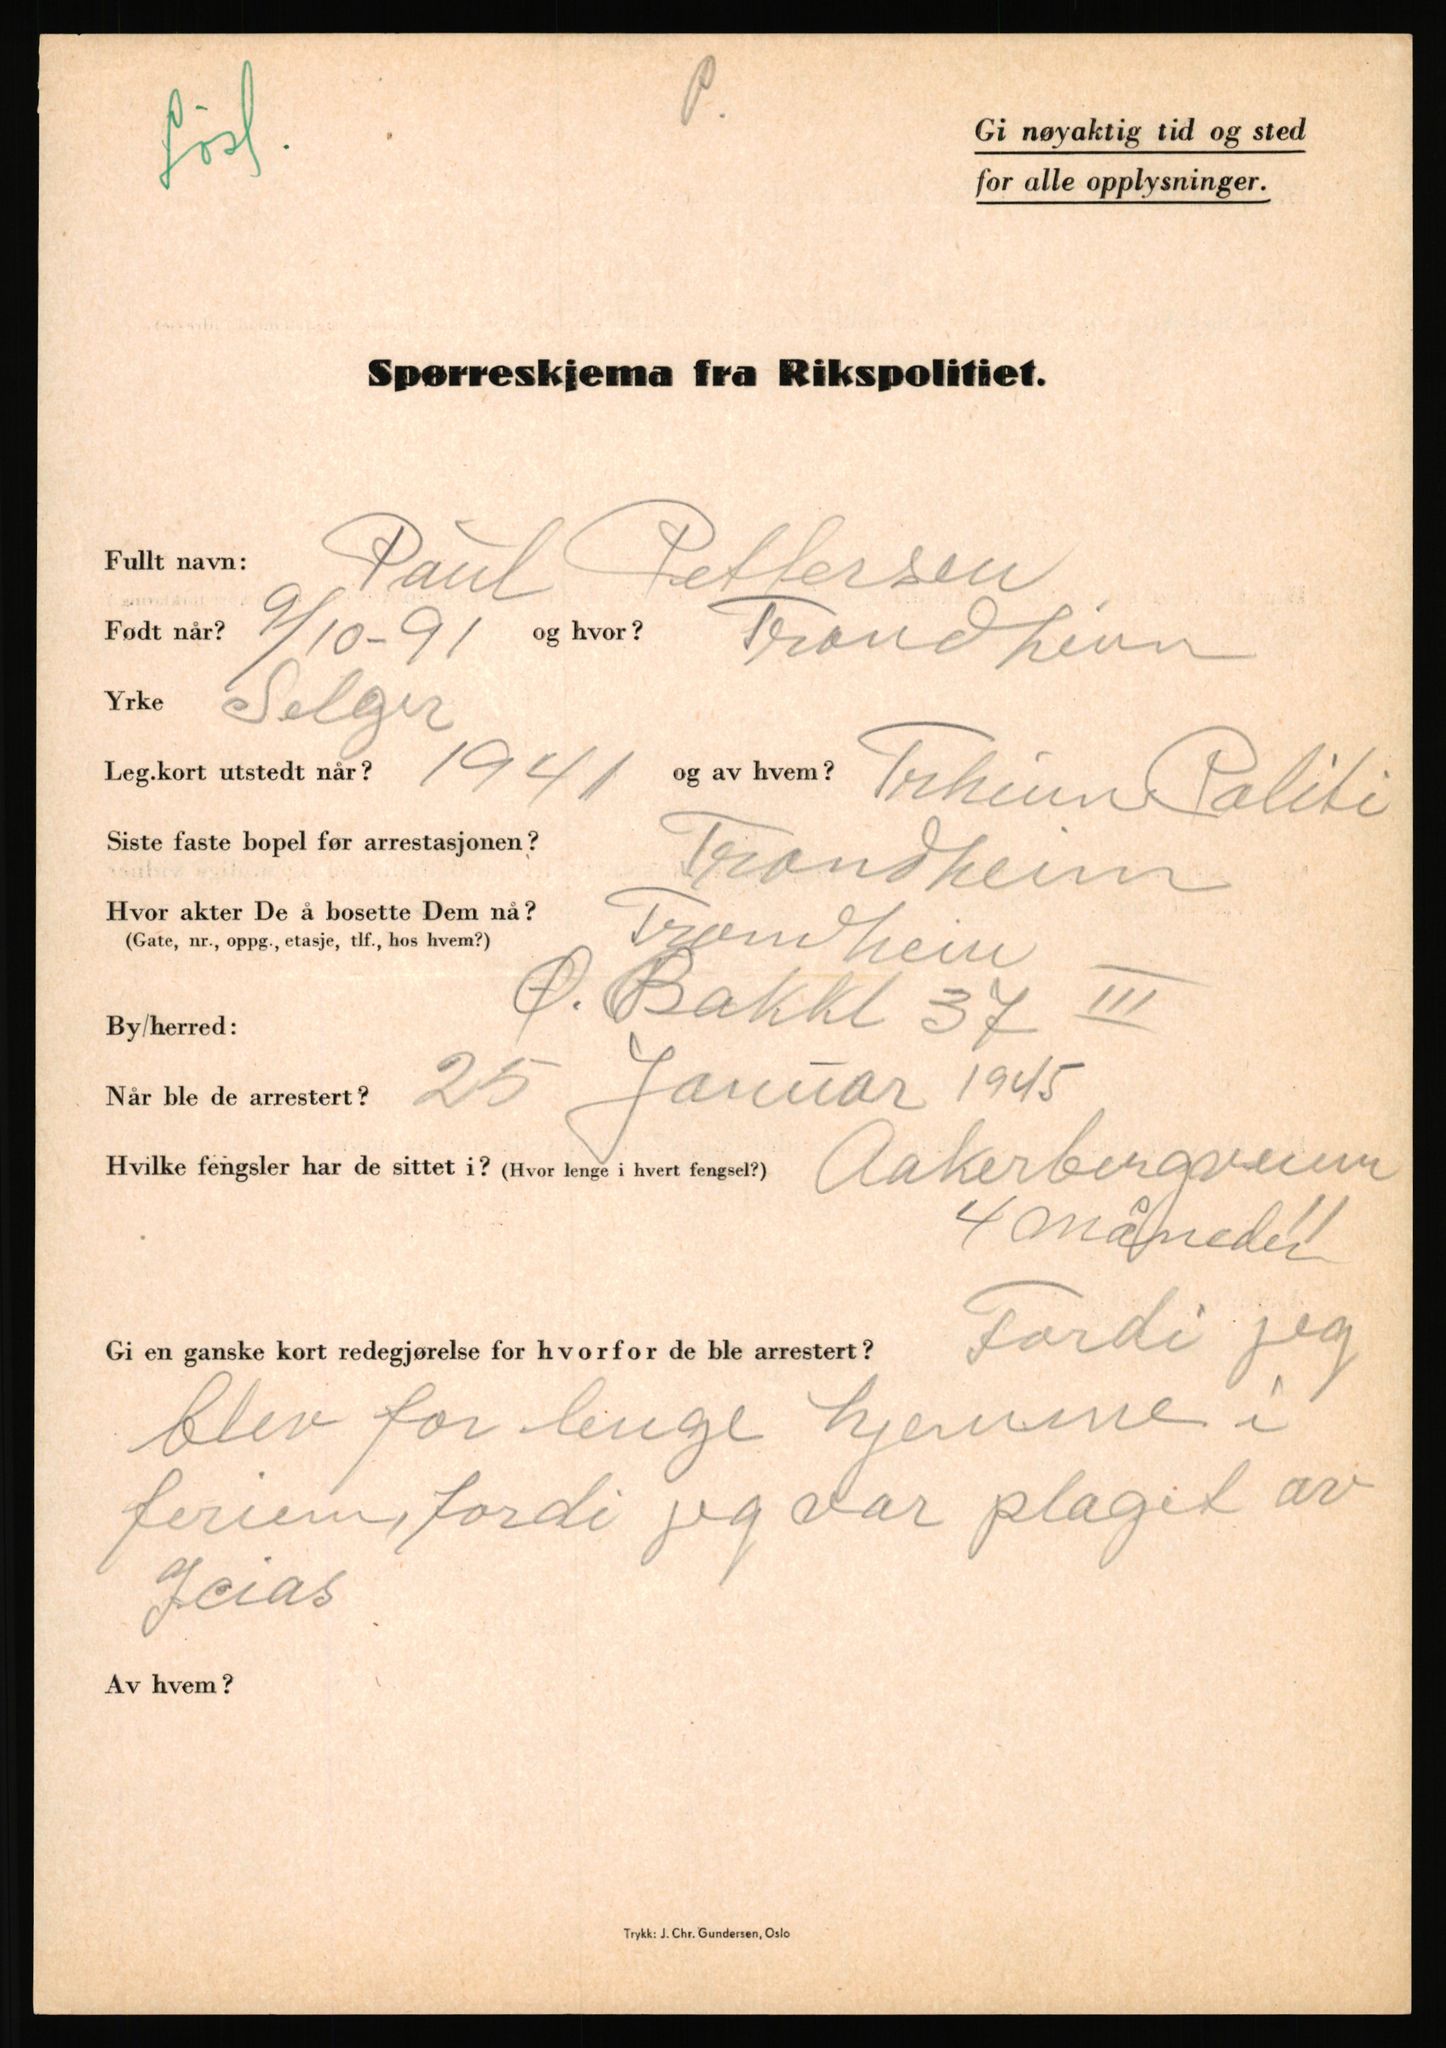 Lösl.
P.
Gi nøyaktig tid og sted
for alle opplysninger.
Spørreskjema fra Rikspolitiet.
Fullt navn: Paul Pettersen
Født når? 9/10-91 og hvor? Trondheim
Yrke Selger
Leg.kort utstedt når? 1941 og av hvem? Trheim Politi
Siste faste bopel før arrestasjonen? Trondheim
Hvor akter De å bosette Dem nå? Trondheim
(Gate, nr., oppg., etasje, tlf., hos hvem?)
Ø. Bakkl 37 III
By/herred:
Når ble de arrestert? 25 Januar 1945
Hvilke fengsler har de sittet i? (Hvor lenge i hvert fengsel?) Aakerbergveien
4 Måneder
Gi en ganske kort redegjørelse for hvorfor de ble arrestert? Fordi jeg
blev for lenge hjemme i
ferien, fordi jeg var plaget av
Icias
Av hvem?
Trykk: J. Chr. Gundersen, Oslo